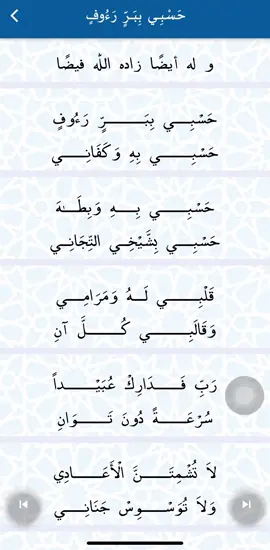 حَسْبِي بِبَرٍّ رَءُوفٍ
و له أيضًا زاده الله فيضًا
حَسْبِي بِبَرٍّ رَءُوفٍ
حَسْبِي بِهِ وَكَفَانِي
حَسْبِي بِهِ وَبِطَهَ
حَسْبِي بِشَيْخِي التِّجَانِي
قَلْبِي لَهُ وَمَرَامِي
وَقَالَبِي كُلَّ آنِ
رَبِّ فَدَارِكْ عُبَيْداً
سُرْعَةً دُونَ تَوَانِ
لاَ تُشْمِتَنَّ الْأَعَادِي
وَلاَ تُوَسْوِسْ جَنَانِي